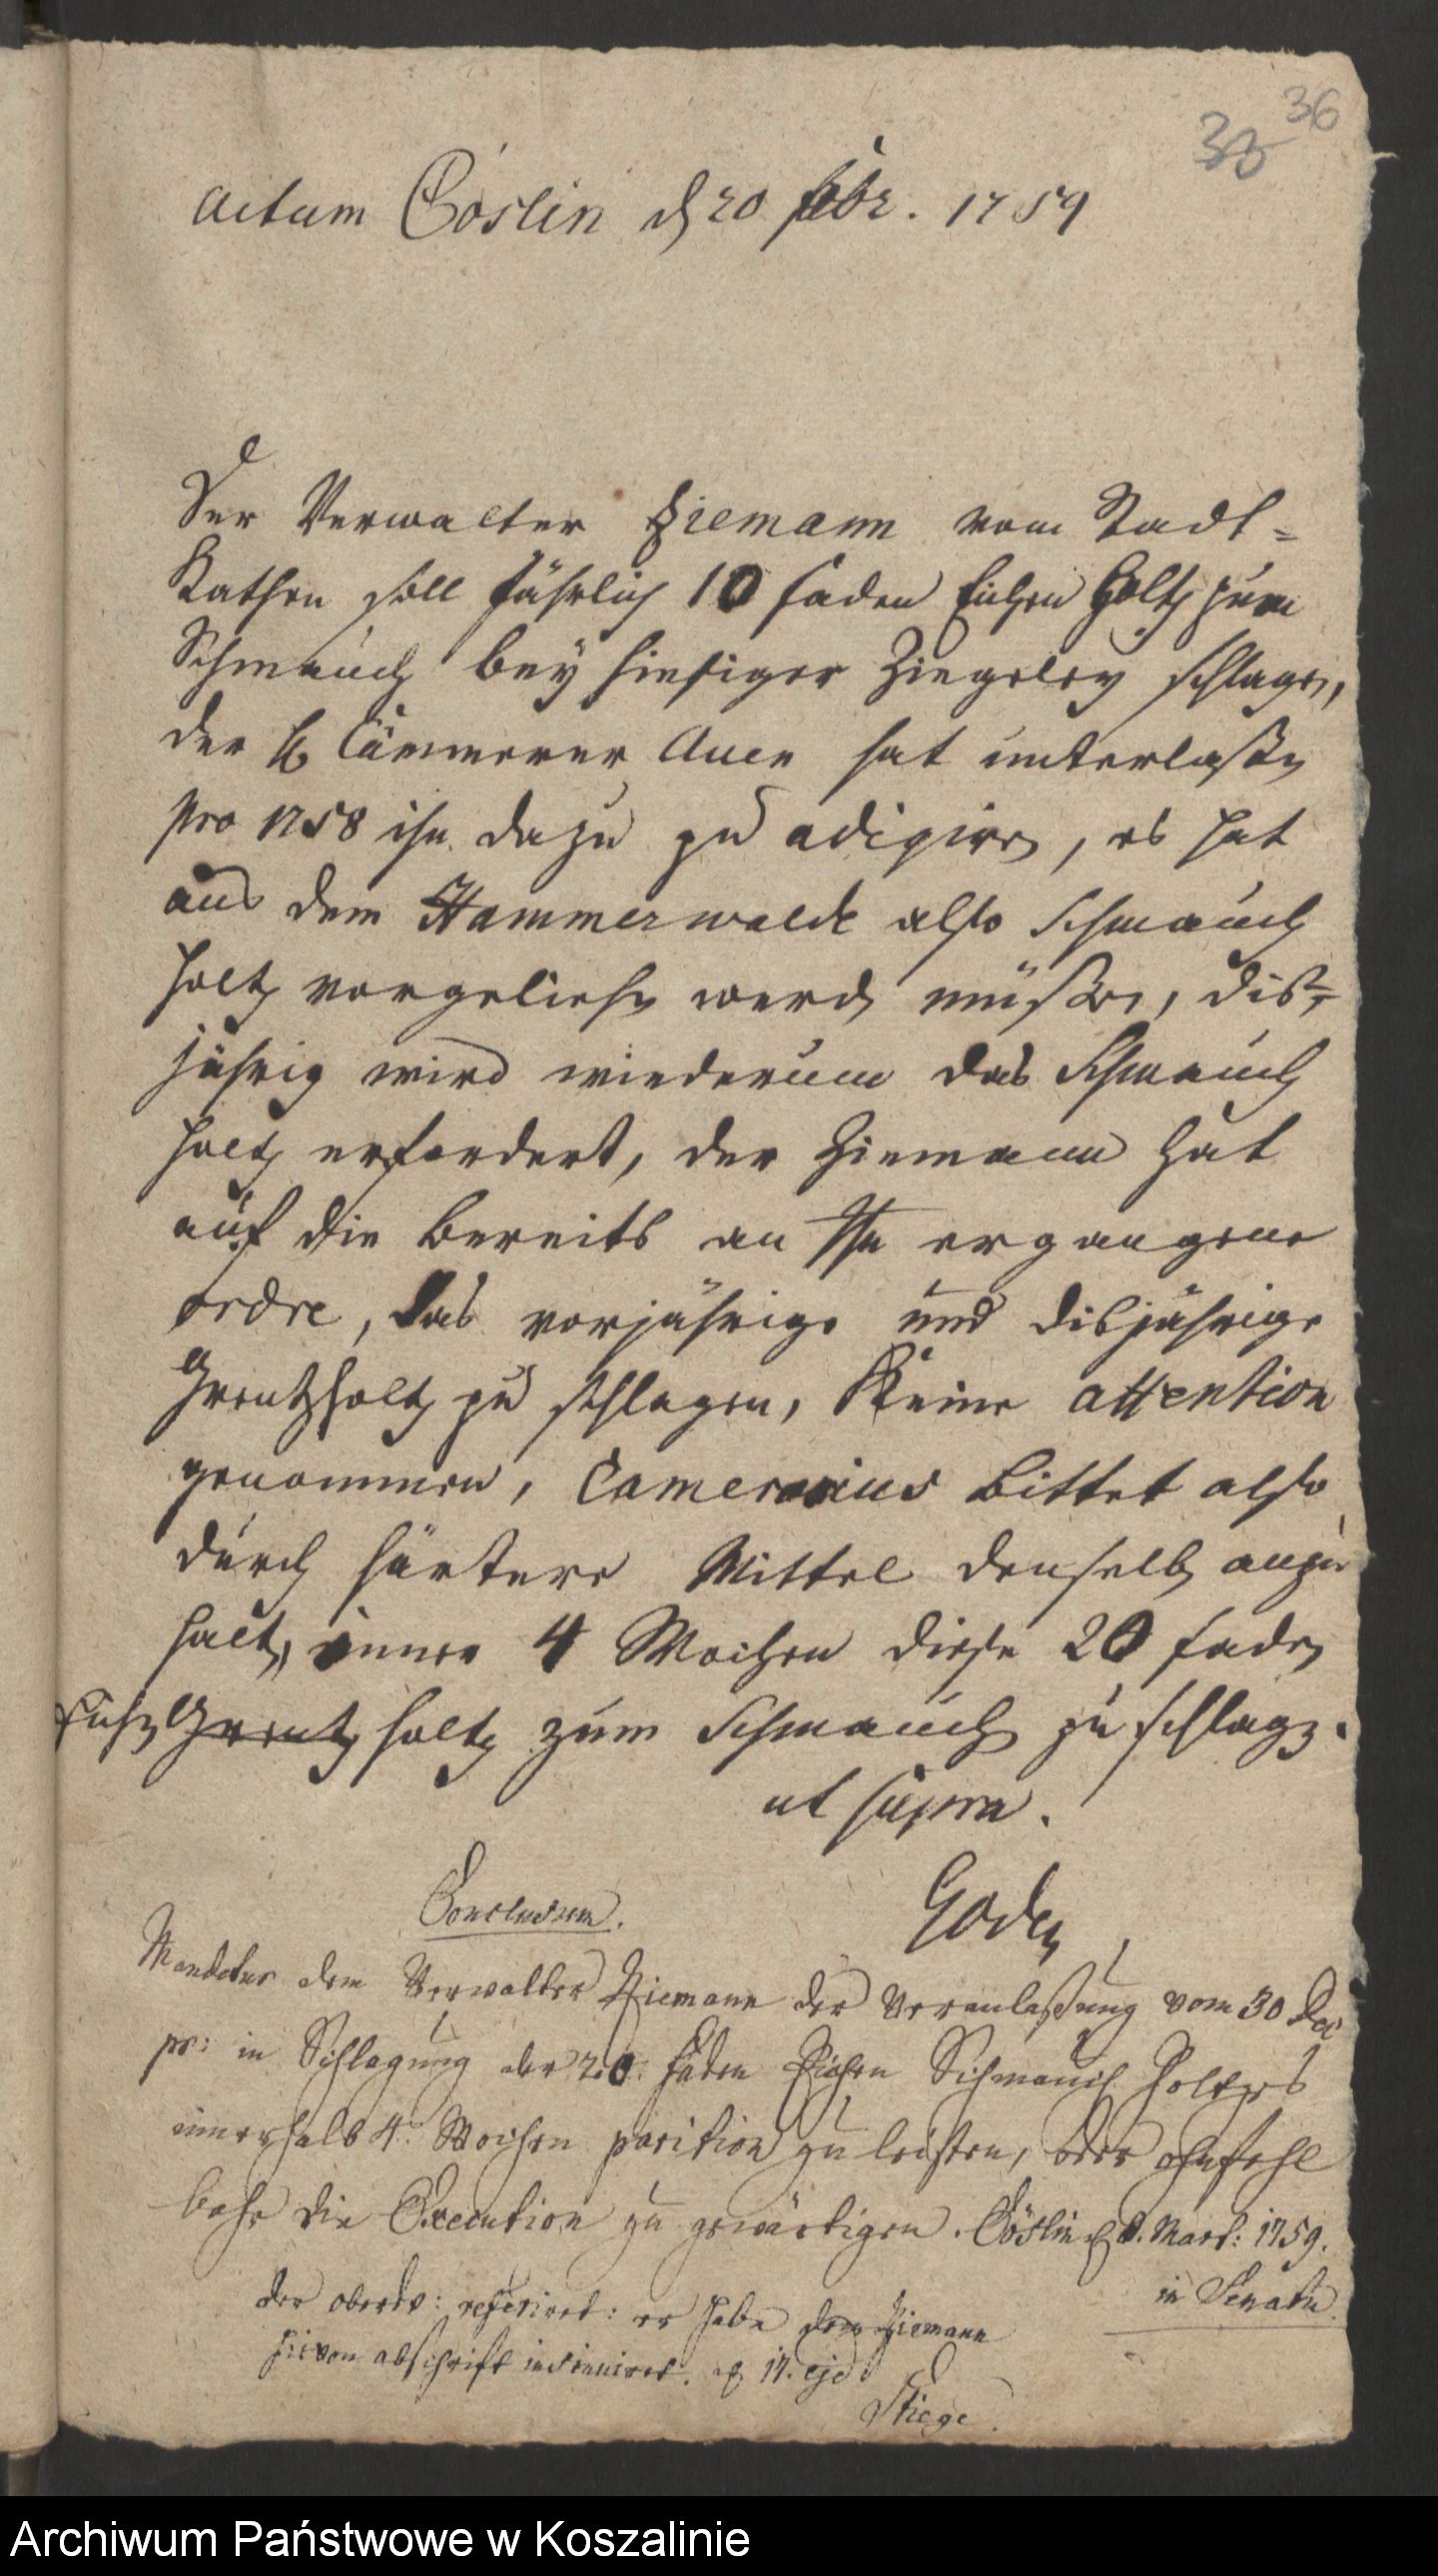 36
38
Actum Cöslin d 20 febr. 1759
Der Verwalter Ziemann vom Stadt=
Kathen soll Jährlich 10 faden Eichen Holtz zum
Schmauch bey hiesiger Ziegeley schlagen,
der H Cämmerer Auen hat unterlaßen
pro 1758 ihn dazu zu adigiren, es hat
aus dem Hammerwalde also Schmauch
holtz vorgeliehen werden müßen, dis=
jährig wird wiederum das Schmauch
holtz erfordert, der Ziemann hat
auf die bereits an Ihn ergangene
ordre, das vorjährige und disjährige
Grentzholtz zu schlagen, Keine attention
genommen, Camerarius bittet also
durch härtere Mittel denselben anzu
halten, innen 4 Wochen diese 20 faden
Eichen Grentz holtz zum Schmauch zu schlagen.
ut supra.
Goden
Conclusum.
Mandatur dem Verwalter Ziemann der Veranlaßung vom 30 Dec
pr: in Schlagung der 20. Faden Eichen Schmauch Holtzes
innerhalb 4. Wochen parition zu leisten, oder ohnfehl
bahr die Execution zu gewärtigen. Cöslin d 8. Mart: 1759.
in Senatu.
der oberdv: referiret: er habe dem Ziemann
hievon abschrift insinuiret. d 17. ej:
Stiege.
Archiwum Państwowe w Koszalinie